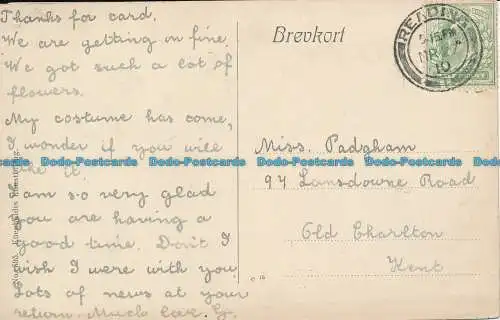 Thanks for card.
We are getting on fine
We got such a lot of
flowers.
My costume has come,
I wonder if you will
like it
I am so very glad
you are having a
good time. Don't I
wish I were with you
Lots of news at your
return. Much love G.
Brevkort
READING
10
Miss. Padgham
97 Lansdowne Road
Old Charlton
Kent
Dodo-Postcards Dodo-Postcards Dodo-Postcards Dodo-Postcards
Dodo-Postcards Dodo-Postcards Dodo-Postcards Dodo-Postcards